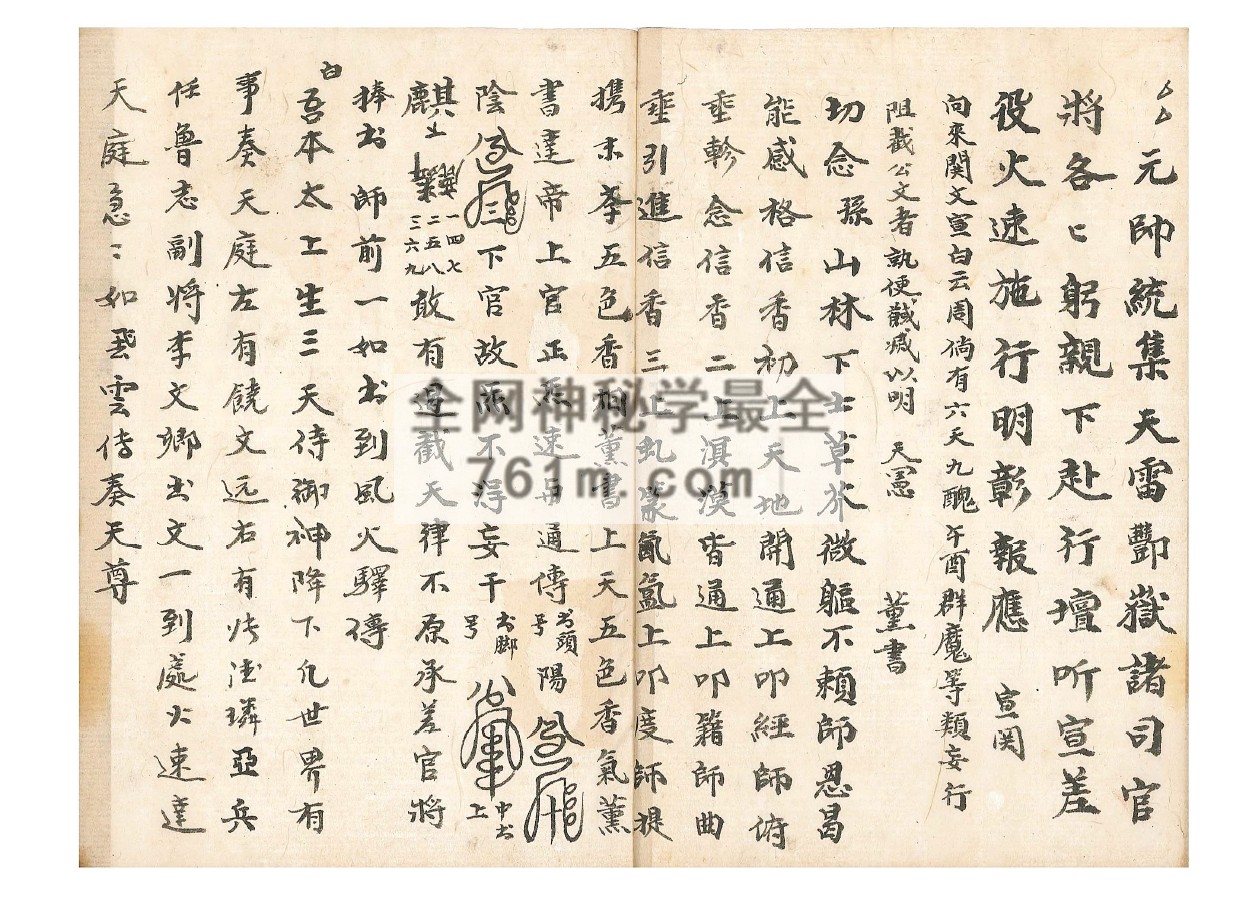 元帥統集天雷酆嶽諸司官
將各〻躬親下赴行壇听宣差
役火速施行明彰報應 宣関
向來関文宣白云周倘有六天九醜午酉群魔等類妄行
阻截公文者執便馘滅以明 天憲 薰書
切念 山林下士草芥微軀不賴師恩曷
能感格信香初上天地開通上叩經師俯
垂軫念信香二上溟漠皆通上叩籍師曲
垂引進信香三上氤氳上叩度師提
携末李五色香相薰書上天五色香氣薰
書達帝上官正 速 通傳 书頭号 陽
陰 下官故 不得妄干 书脚号 中书上
麒 一四七 二五八 三六九 敢有 截天律不原承差官将
捧书師前一如书到風火驛傳
白
吾本太上生三天侍御神降下凡世界有
事奏天庭左有饒文远右有 璘亞兵
任魯志副将李文卿书文一到處火速達
天庭急〻如飛雲传奏天尊
全网神秘学最全
761m.com